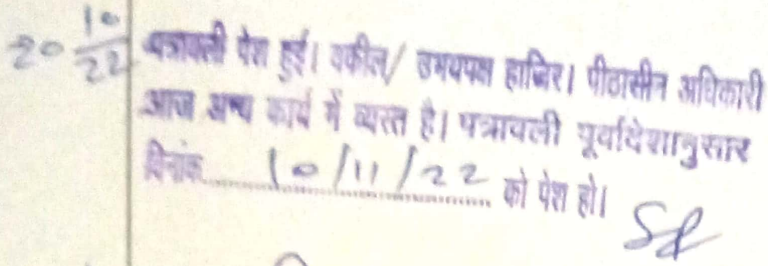 20 10/22 पत्रावली पेश हुई। वकील/ उभयपक्ष हाजिर। पीठासीन अधिकारी
आज अन्य कार्य में व्यस्त है। पत्रावली पूर्वादेशानुसार
दिनांक 10/11/22 को पेश हो।